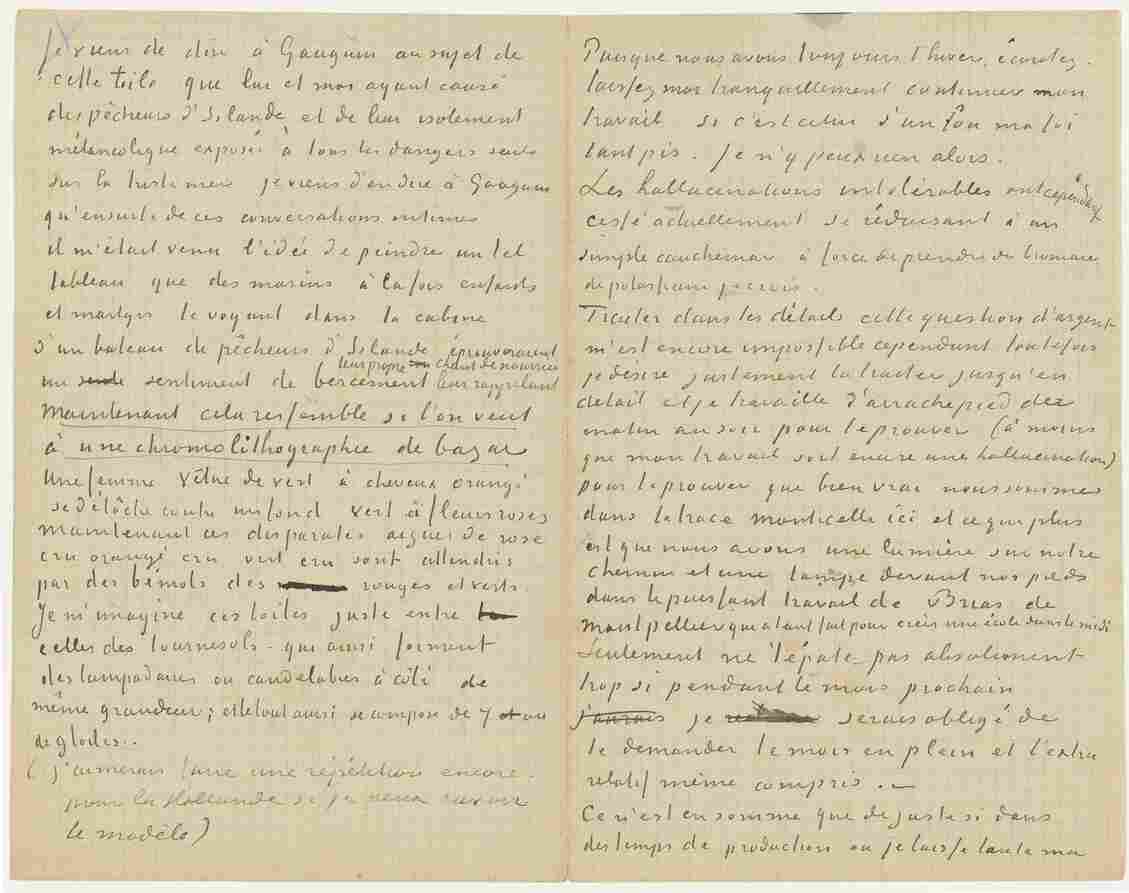 Je viens de dire à Gauguin au sujet de
cette toile que lui et moi ayant causé
des pêcheurs d'Islande et de leur isolement
mélancolique exposés à tous les dangers seuls
sur la triste mer je viens d'en dire à Gauguin
qu'ensuite de ces conversations intimes
il m'était venu l'idée de peindre un tel
tableau que des marins à la fois enfants
et martyrs le voyant dans la cabine
d'un bateau de pêcheurs d'Islande éprouveraient
un sentiment de bercement leur rappelant
leur propre chant de nourrice
Maintenant cela ressemble si l'on veut
à une chromolithographie de bazar
Une femme vêtue de vert à cheveux orangés
se détache contre un fond vert à fleurs roses
Maintenant ces disparates aigues de rose
cru orangé cru vert cru sont attendris
par des bémols des rouges et verts.
Je m'imagine ces toiles juste entre
celles des tournesols - qui ainsi forment
des lampadaires ou candelabres à côté de
même grandeur; et le tout ainsi se compose de 7 ou
de 9 toiles..
(j'aimerais faire une répétition encore
pour la Hollande si je peux ravoir
le modèle)
Puisque nous avons toujours l'hiver, écoutez.
laissez moi tranquillement continuer mon
travail si c'est celui d'un fou ma foi
tant pis. Je n'y peux rien alors.
Les hallucinations intolérables ont cependant
cessé actuellement se réduisant à un
simple cauchemar à force de prendre du bromure
de potassium je crois.
Traiter dans les détails cette question d'argent
m'est encore impossible cependant toutefois
je desire justement la traiter jusqu'en
détail et je travaille d'arrachepied dès
matin au soir pour te prouver (à moins
que mon travail soit encore une hallucination)
pour te prouver que bien vrai nous sommes
dans la trace Monticelli ici et ce qui plus
est que nous avons une lumière sur notre
chemin et une lampe devant nos pieds
dans le puissant travail de Bruas de
Montpellier qui a tant fait pour créer une école dans le midi
Seulement ne t'épate pas absolument
trop si pendant le mois prochain
je serais obligé de
te demander le mois en plein et l'extra
relatif même compris. —
Ce n'est en somme que de juste si dans
des temps de production où je laisse toute ma